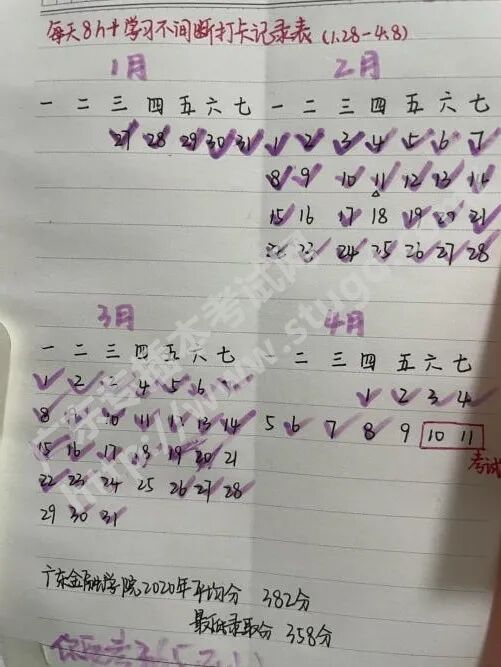 每天8h+学习不间断打卡记录表(1.28-4.8)
1月 2月
一 二 三 四 五 六 七 一 二 三 四 五 六 七
27 28 29 30 31 1 2 3 4 5 6 7
8 9 10 11 12 13 14
15 16 17 18 19 20 21
22 23 24 25 26 27 28
3月 4月
一 二 三 四 五 六 七 一 二 三 四 五 六 七
1 2 3 4 5 6 1 2 3 4
8 9 10 11 12 13 14 5 6 7 8 9 10 11
考试
15 16 17 18 19 20 21
22 23 24 25 26 27 28
29 30 31
广东金融学院2020年平均分 382分
最低录取分 358分
广东专插本考试网